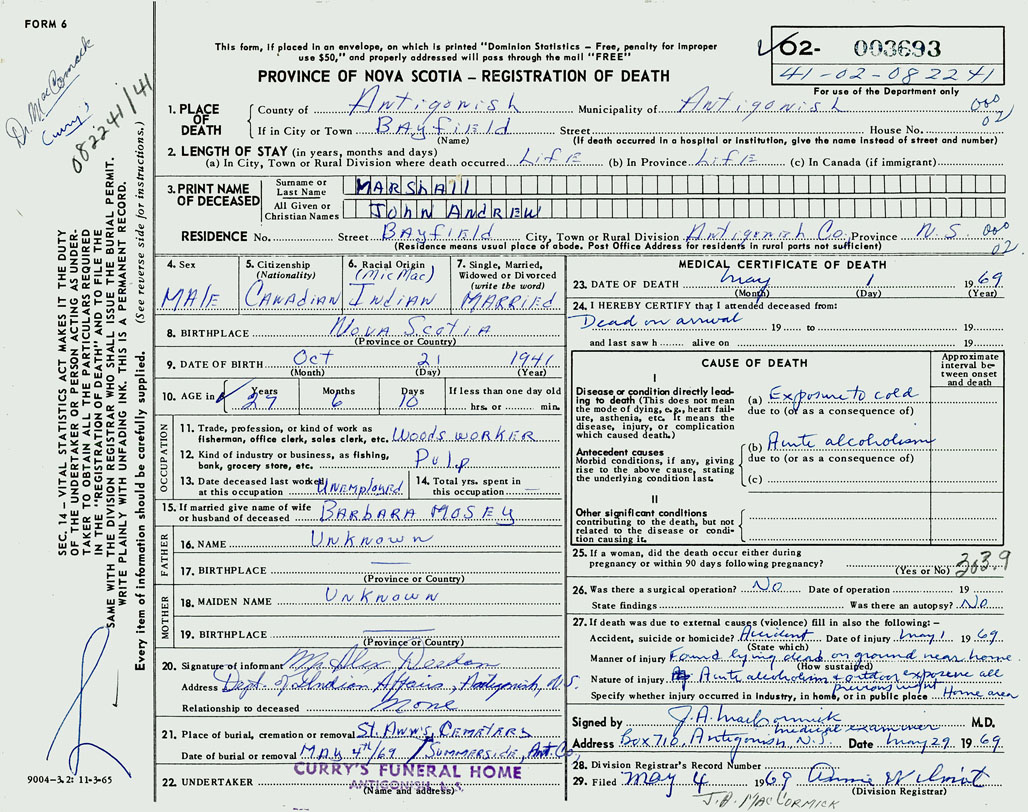 FORM 6
Dr. MacCormack
Curry's
082241/41
This form, if placed in an envelope, on which is printed "Dominion Statistics – Free, penalty for improper
use $50," and properly addressed will pass through the mail "FREE"
PROVINCE OF NOVA SCOTIA – REGISTRATION OF DEATH
02- 003693
41-02-082241
For use of the Department only
SEC. 14 – VITAL STATISTICS ACT MAKES IT THE DUTY
OF THE UNDERTAKER OR PERSON ACTING AS UNDER-
TAKER TO OBTAIN ALL THE PARTICULARS REQUIRED
IN THE "REGISTRATION OF DEATH" AND TO FILE THE
SAME WITH THE DIVISION REGISTRAR WHO SHALL ISSUE THE BURIAL PERMIT.
WRITE PLAINLY WITH UNFADING INK. THIS IS A PERMANENT RECORD.
Every item of information should be carefully supplied. (See reverse side for instructions.)
1. PLACE OF DEATH
County of Antigonish Municipality of Antigonish 000
02
If in City or Town Bayfield Street House No.
(Name) (If death occurred in a hospital or institution, give the name instead of street and number)
2. LENGTH OF STAY (in years, months and days)
(a) In City, Town or Rural Division where death occurred Life (b) In Province Life (c) In Canada (if immigrant)
3. PRINT NAME OF DECEASED
Surname or Last Name MARSHAll
All Given or Christian Names JOHN ANDREW
RESIDENCE No. Street Bayfield City, Town or Rural Division Antigonish Co. Province N.S. 000
02
(Residence means usual place of abode. Post Office Address for residents in rural parts not sufficient)
4. Sex
MALE
5. Citizenship
(Nationality)
CANADIAN
6. Racial Origin
(MicMac)
Indian
7. Single, Married,
Widowed or Divorced
(write the word)
MARRIED
8. BIRTHPLACE Nova Scotia
(Province or Country)
9. DATE OF BIRTH Oct 21 1941
(Month) (Day) (Year)
10. AGE in Years Months Days If less than one day old
27 6 10 hrs. or min.
OCCUPATION
11. Trade, profession, or kind of work as
fisherman, office clerk, sales clerk, etc. WOODS WORKER
12. Kind of industry or business, as fishing,
bank, grocery store, etc. Pulp
13. Date deceased last worked
at this occupation Unemployed
14. Total yrs. spent in
this occupation —
15. If married give name of wife
or husband of deceased BARBARA MOSEY
FATHER
16. NAME Unknown
17. BIRTHPLACE —
(Province or Country)
MOTHER
18. MAIDEN NAME Unknown
19. BIRTHPLACE —
(Province or Country)
20. Signature of informant Mr. Alex
Address Dept. of Indian Affairs, Antigonish, N.S.
Relationship to deceased None
21. Place of burial, cremation or removal St. Ann's Cemetery
Date of burial or removal MAY 4th/69 / Summerside, Ant. Co.
22. UNDERTAKER CURRY'S FUNERAL HOME
ANTIGONISH, N.S.
(Name and address)
9004–3.2: 11-3-65
MEDICAL CERTIFICATE OF DEATH
23. DATE OF DEATH May 1 1969
(Month) (Day) (Year)
24. I HEREBY CERTIFY that I attended deceased from:
Dead on arrival 19 to 19
and last saw h alive on 19
CAUSE OF DEATH
Approximate interval between onset and death
I
Disease or condition directly lead-
ing to death (This does not mean
the mode of dying, e.g., heart fail-
ure, asthenia, etc. It means the
disease, injury, or complication
which caused death.)
(a) Exposure to cold
due to (or as a consequence of)
Antecedent causes
Morbid conditions, if any, giving
rise to the above cause, stating
the underlying condition last.
(b) Acute alcoholism
due to (or as a consequence of)
(c)
II
Other significant conditions
contributing to the death, but not
related to the disease or condi-
tion causing it.
25. If a woman, did the death occur either during
pregnancy or within 90 days following pregnancy?
(Yes or No) 303.9
26. Was there a surgical operation? No Date of operation 19
State findings Was there an autopsy? No
27. If death was due to external causes (violence) fill in also the following: –
Accident, suicide or homicide? Accident Date of injury May 1 1969
(State which)
Manner of injury Found lying dead on ground near home
(How sustained)
Nature of injury Acute alcoholism & outdoor exposure all
previous night
Specify whether injury occurred in industry, in home, or in public place Home area
Signed by J.A. MacCormick M.D.
medical examiner
Address Box 718, Antigonish, N.S. Date May 29 1969
28. Division Registrar's Record Number
29. Filed May 4 1969 Annie Wilmot
(Division Registrar)
J.A. MACCORMICK